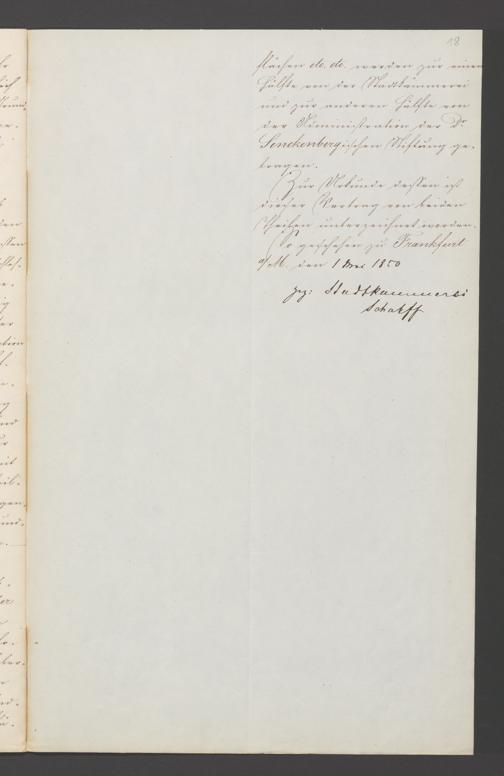 18
flächen etc. etc. werden zur einen
Hälfte von der Stadtkämmerei
und zur anderen Hälfte von
der Administration der Dr.
Senckenbergischen Stiftung ge-
tragen.
Zur Urkunde dessen ist
dieser Vertrag von beiden
Theilen unterzeichnet worden.
So geschehen zu Frankfurt
a/M. den 1 Mai 1850
gez: Stadtkaemmerei
Scharff